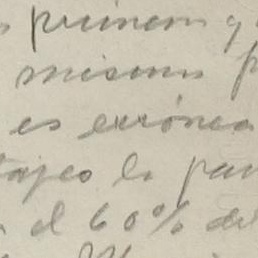 primeros y
mismos p
es errónea
tajes la par
el 60% del